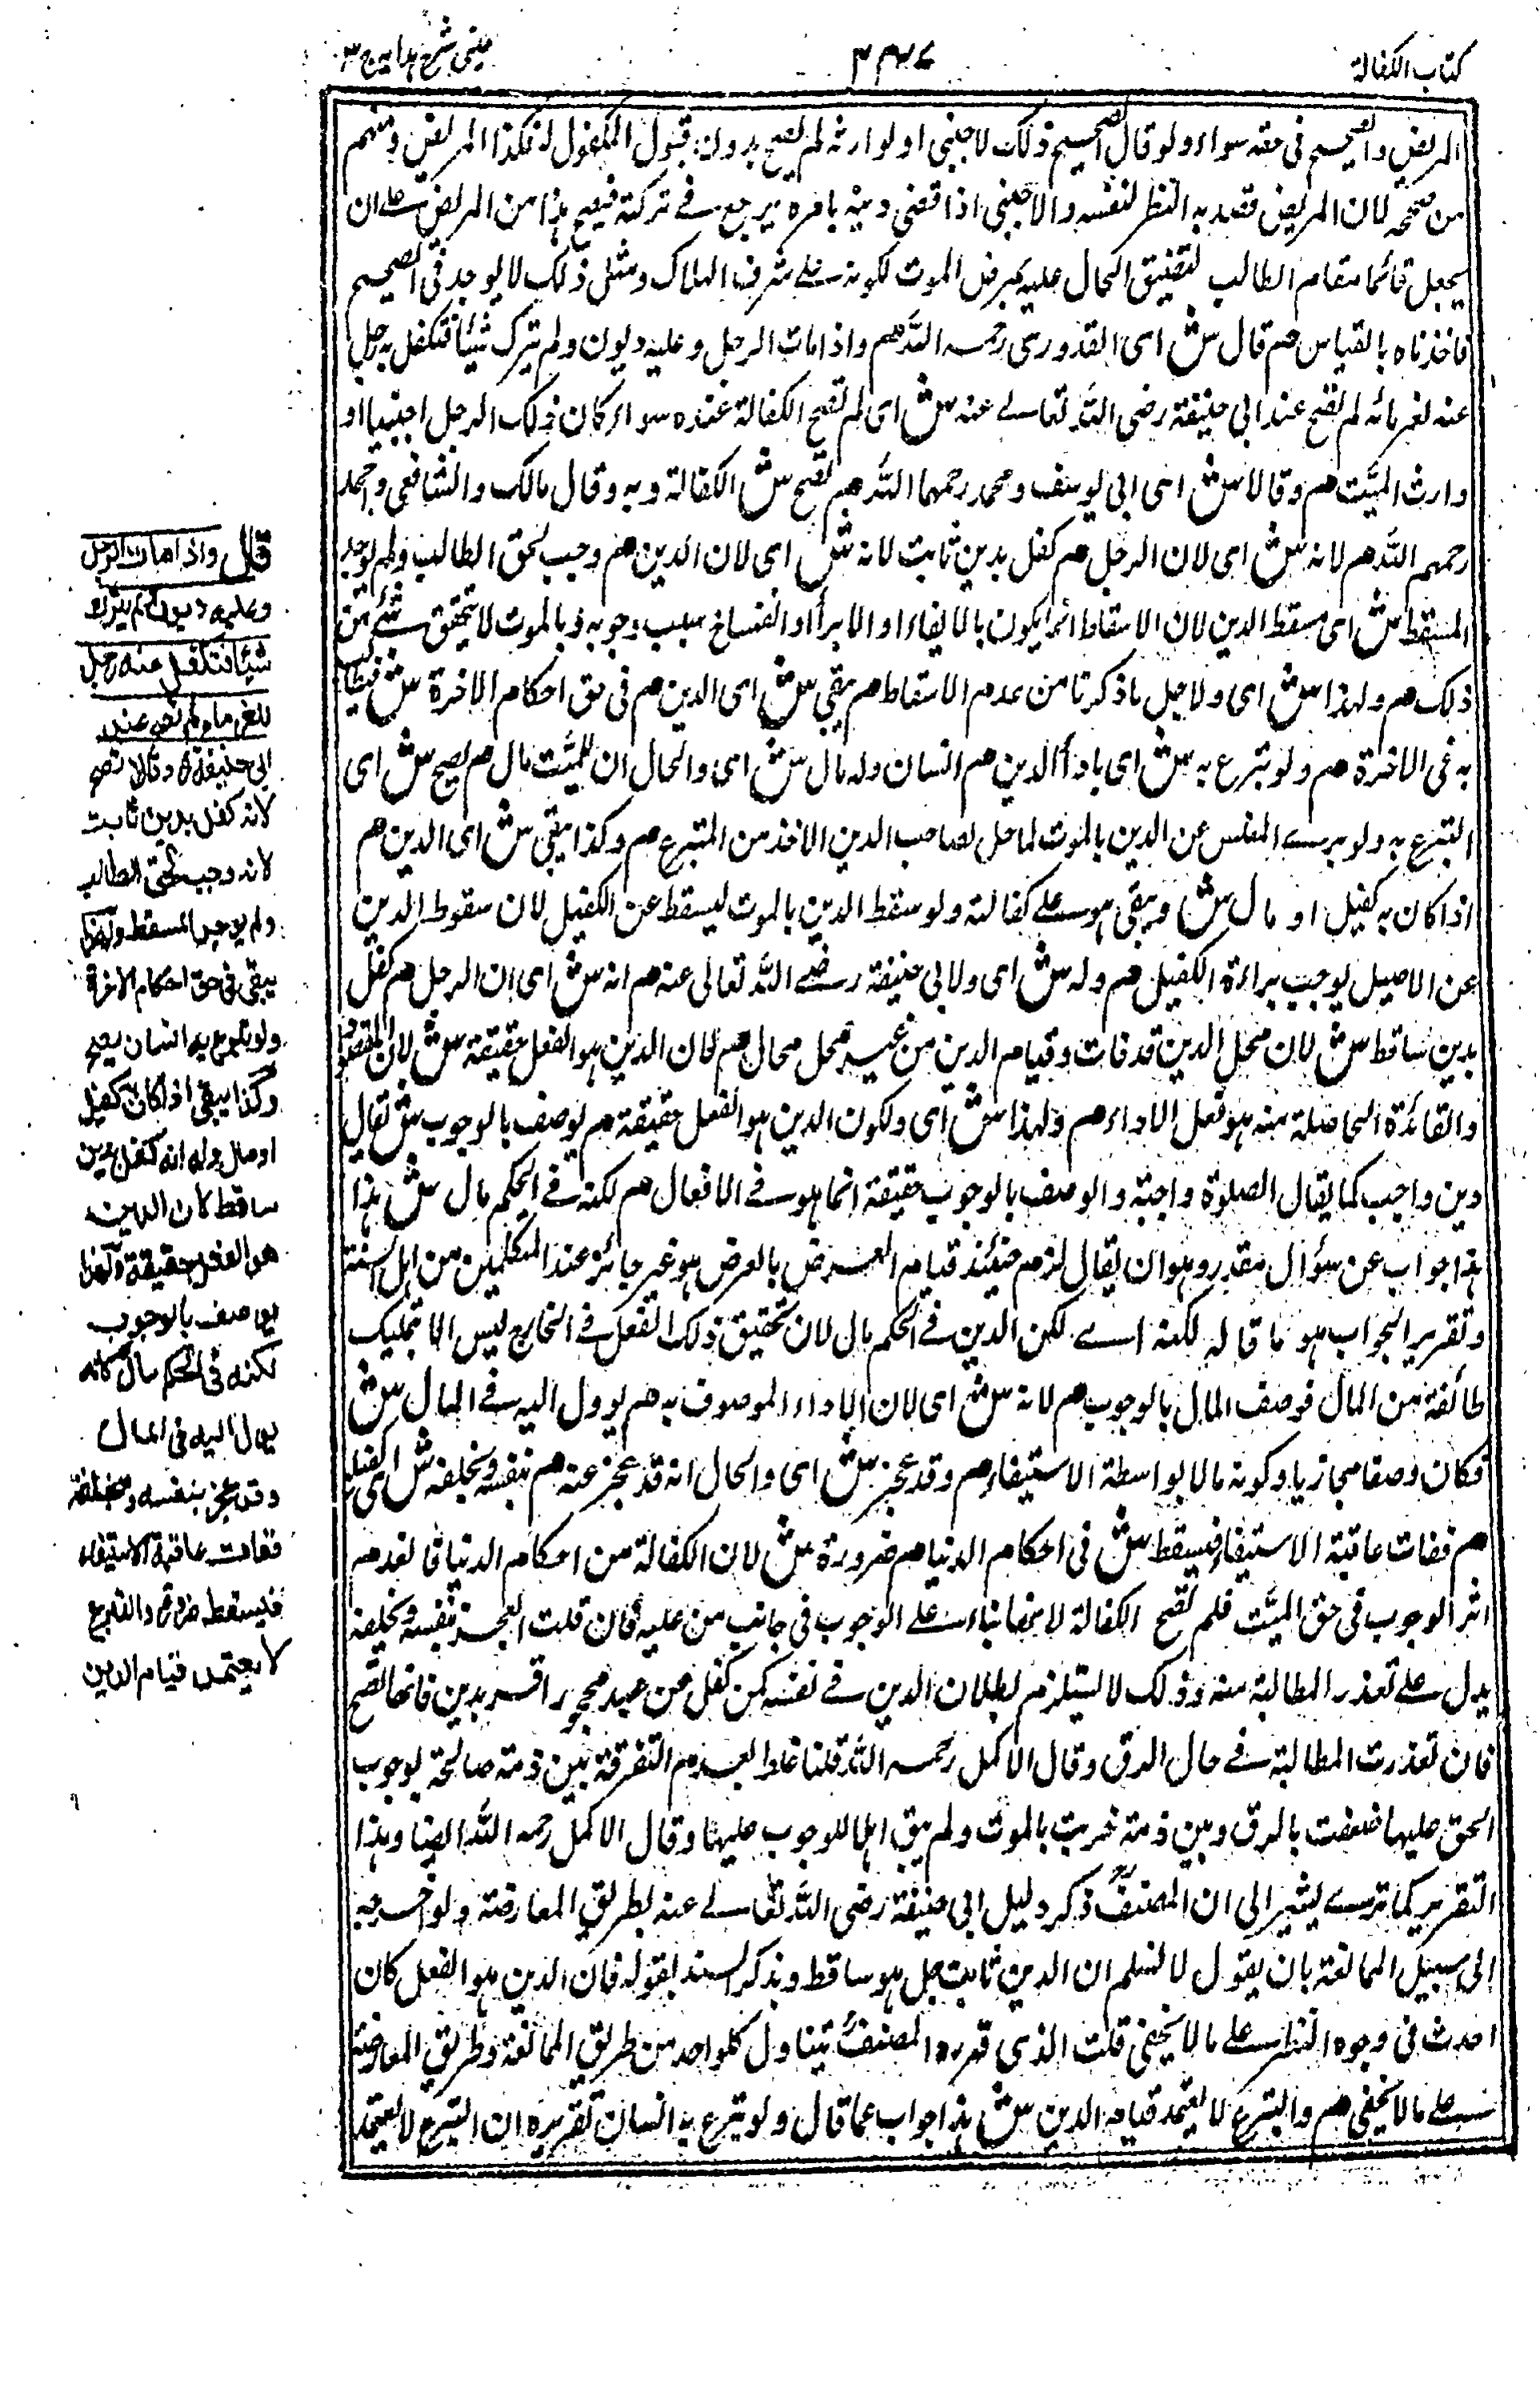 كتاب الكفالة
عينى شرح هدايه ج ٣
المريض والصحيح فى حقه سواء ولو قال الصحيح ذلك لاجنبى او لوارثه لم يصح بدون قبول المكفول له فكذا المريض ومنهم
من صححه لان المريض قصد به النظر لنفسه والاجنبى اذا قضى دينه بامره يرجع فے تركته فيصح هذا من المريض علے ان
يجعل قائما مقام الطالب لتضيق الحال عليه بمرض الموت لكونه علے شرف الهلاك ومثل ذلك لا يوجد فى الصحيح
فاخذناه بالقياس هم قال ش اى القدورى رحمه الله هم واذا مات الرجل وعليه ديون ولم يترك شيئا فتكفل به رجل
عنه لغرمائه لم تصح عند ابى حنيفة رضى الله تعالے عنه ش اى لم تصح الكفالة عنده سواء كان ذلك الرجل اجنبيا او
وارث الميت هم وقالا ش اى ابى يوسف ومحمد رحمهما الله هم تصح ش الكفالة وبه وقال مالك والشافعى واحمد
رحمهم الله هم لانه ش اى لان الرجل هم كفل بدين ثابت لانه ش اى لان الدين هم وجب لحق الطالب ولم يوجد
المسقط ش اى مسقط الدين لان الاسقاط انما يكون بالايفاء او الابراء او انفساخ سبب وجوبه وبالموت لا يتحقق شئ من
ذلك هم ولهذا ش اى ولاجل ما ذكرنا من عدم الاسقاط هم يبقى ش اى الدين هم فى حق احكام الاخرة ش فيطالب
به فى الاخرة هم ولو تبرع به ش اى باداء الدين هم انسان وله مال ش اى والحال ان للميت مال هم يصح ش اى
التبرع به ولو برے المفلس عن الدين بالموت لما حل لصاحب الدين الاخذ من المتبرع هم وكذا يبقى ش اى الدين هم
اذا كان به كفيل او مال ش ويبقى هو علے كفالته ولو سقط الدين بالموت ليسقط عن الكفيل لان سقوط الدين
عن الاصيل يوجب براءة الكفيل هم وله ش اى ولابى حنيفة رضے الله تعالى عنه هم انه ش اى ان الرجل هم كفل
بدين ساقط ش لان محل الدين قد فات وقيام الدين من غير محل محال هم لان الدين هو الفعل حقيقة ش لان المقصود
والفائدة الحاصلة منه هو فعل الاداء هم ولهذا ش اى ولكون الدين هو الفعل حقيقة هم يوصف بالوجوب ش يقال
دين واجب كما يقال الصلوة واجبة والوصف بالوجوب حقيقة انما هو فے الافعال هم لكنه فے الحكم مال ش هذا
هذا جواب عن سؤال مقدر وهو ان يقال لزم حينئذ قيام العرض بالعرض هو غير جائز عند المتكلمين من اهل السنة
وتقرير الجواب هو ما قاله لكنه اے لكن الدين فے الحكم مال لان تحقيق ذلك الفعل فے الخارج ليس الا بتمليك
طائفة من المال فوصف المال بالوجوب هم لانه ش اى لان الاداء الموصوف به هم يوول اليه فے المال ش
فكان وصفا مجازيا وكونه مالا بواسطة الاستيفاء هم وقد عجز ش اى والحال انه قد عجز عنه هم بنفسه وبخلفه ش اى الكفيل
هم ففات عاقبة الاستيفاء فيسقط ش فى احكام الدنيا هم ضرورة ش لان الكفالة من احكام الدنيا فانعدم
اثر الوجوب فى حق الميت فلم تصح الكفالة لابتنائها علے الوجوب فى جانب من عليه فان قلت العجز بنفسه وبخليفه
يدل علے تعذر المطالبة منه وذلك لا يستلزم بطلان الدين فے نفسه كمن كفل عن عبد محجور اقر بدين فانها تصح
فان تعذرت المطالبة فے حال الرق وقال الاكمل رحمه الله قلنا غلط لعدم التفرقة بين ذمة صالحة لوجوب
الحق عليها ضعفت بالرق وبين ذمة خربت بالموت ولم يبق اهلا للوجوب عليها وقال الاكمل رحمه الله ايضا وهذا
التقرير كما ترى يشير الى ان المصنف ذكر دليل ابى حنيفة رضى الله تعالے عنه بطريق المعارضة ولو خرجه
الى سبيل الممانعة بان يقول لا نسلم ان الدين ثابت بل هو ساقط ويذكر السند بقوله فان الدين هو الفعل كان
احدث فى وجوه النظر علے ما لا يخفى قلت الذى قرره المصنف يتناول كلواحد من طريق الممانعة وطريق المعارضة
علے ما لا يخفى هم والتبرع لا يعتمد قيام الدين ش هذا جواب عما قال ولو تبرع به انسان تقريره ان التبرع لا يعتمد
قال واذا مات الرجل
وعليه ديون ولم يترك
شيئا فتكفل عنه رجل
للغرماء لم تصح عند
ابى حنيفة وقالا تصح
لانه كفل بدين ثابت
لانه وجب لحق الطالب
ولم يوجد المسقط ولهذا
يبقى فى حق احكام الاخرة
ولو تبرع به انسان يصح
وكذا يبقى اذا كان به كفيل
او مال وله انه كفل بدين
ساقط لان الدين
هو الفعل حقيقة ولهذا
يوصف بالوجوب
لكنه فى الحكم مال لانه
يول اليه فى المال
وقد عجز بنفسه وبخلفه
ففات عاقبة الاستيفاء
فيسقط ضرورة والتبرع
لا يعتمد قيام الدين